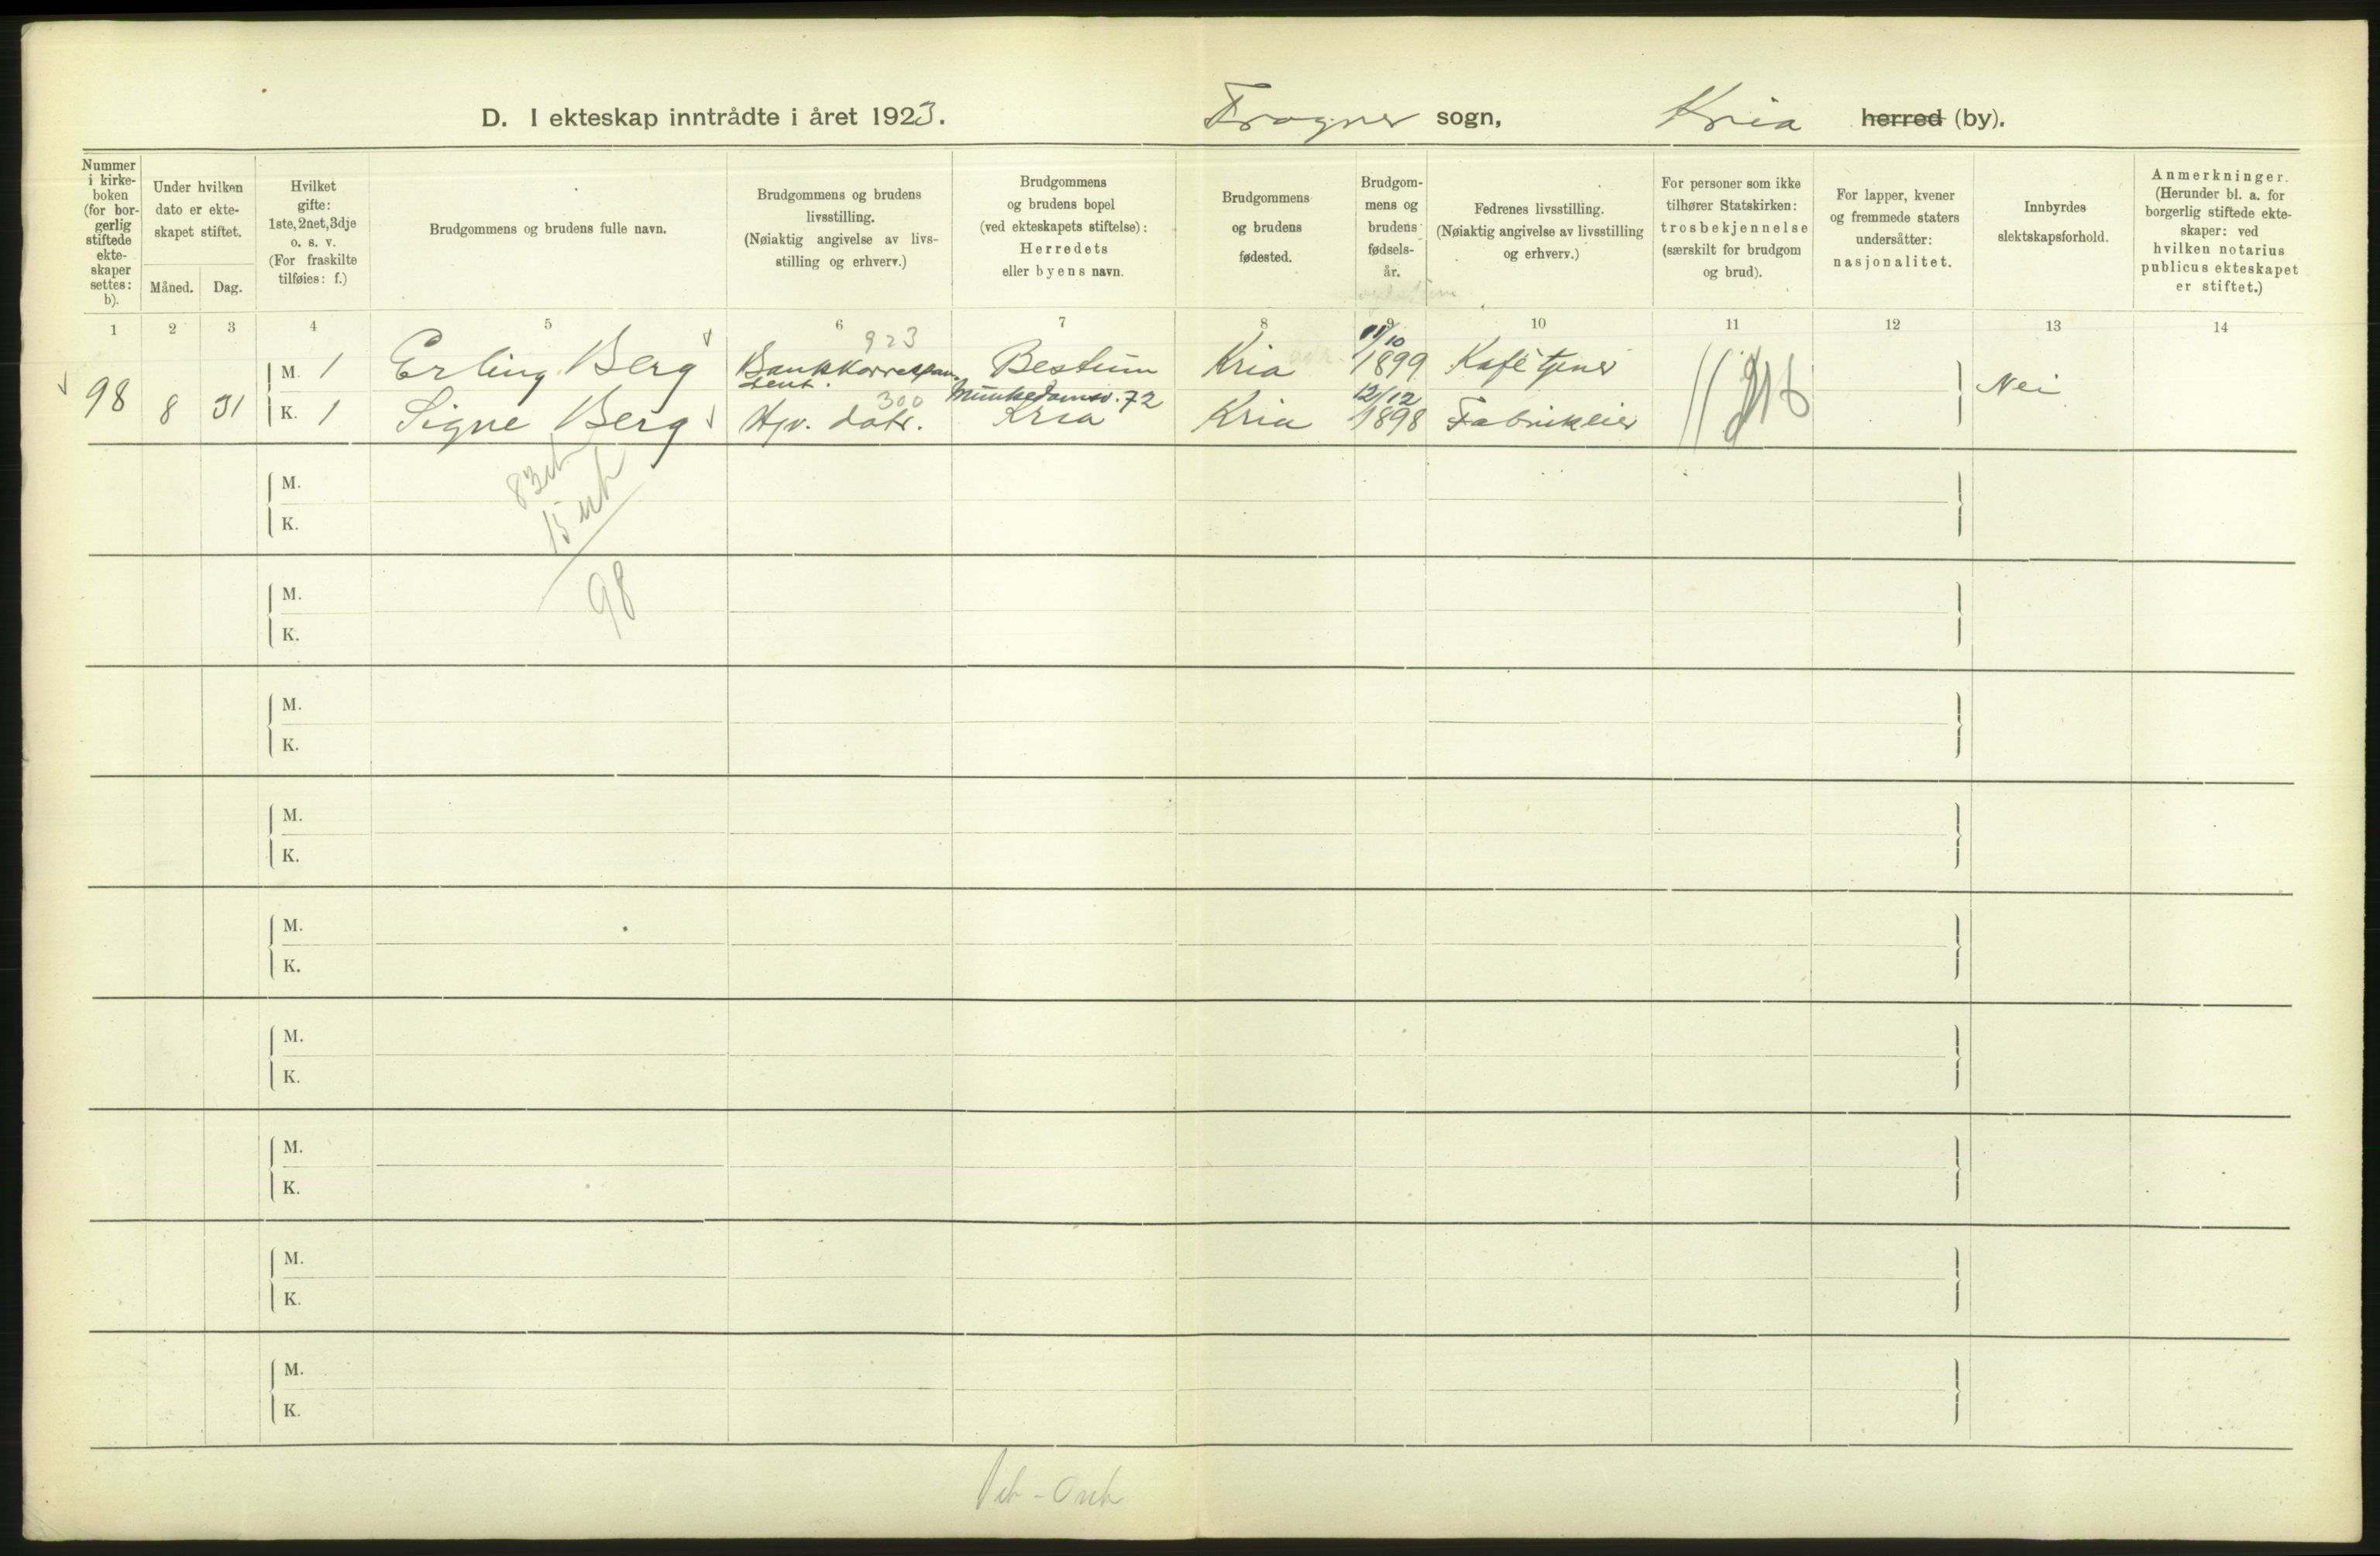 D. I ekteskap inntrådte i året 1923. Frogner sogn, Kria herred (by).
Nummer
i kirke-
boken
(for bor-
gerlig
stiftede
ekte-
skaper
settes:
b).
Under hvilken
dato er ekte-
skapet stiftet.
Måned. Dag.
Hvilket
gifte:
1ste, 2net, 3dje
o. s. v.
(For fraskilte
tilføies: f.)
Brudgommens og brudens fulle navn.
Brudgommens og brudens
livsstilling.
(Nøiaktig angivelse av livs-
stilling og erhverv.)
Brudgommens
og brudens bopel
(ved ekteskapets stiftelse):
Herredets
eller byens navn.
Brudgommens
og brudens
fødested.
Brudgom-
mens og
brudens
fødsels-
år.
Fedrenes livsstilling.
(Nøiaktig angivelse av livsstilling
og erhverv.)
For personer som ikke
tilhører Statskirken:
trosbekjennelse
(særskilt for brudgom
og brud).
For lapper, kvener
og fremmede staters
undersåtter:
nasjonalitet.
Innbyrdes
slektskapsforhold.
Anmerkninger.
(Herunder bl. a. for
borgerlig stiftede ekte-
skaper: ved
hvilken notarius
publicus ekteskapet
er stiftet.)
1 2 3 4 5 6 7 8 9 10 11 12 13 14
923 11/10
M. 1 Erling Berg Bankkorrespon- Bestum Kria 1899 Kafétjener
dent. 300 Munkedamsv. 72 12/12
98 8 31 Nei
K. 1 Signe Berg Hjv. datr. Kria Kria 1898 Fabrikeier
M.
K.
83 ub
15 ub
98
M.
K.
M.
K.
M.
K.
M.
K.
M.
K.
M.
K.
M.
K.
M.
K.